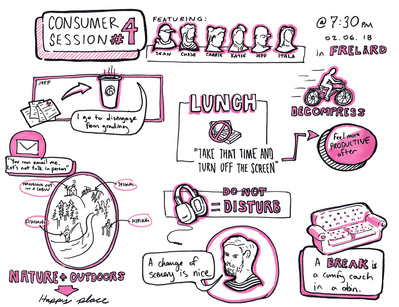 CONSUMER
SESSION #4
FEATURING:
SEAN CHASE CARRIE KATIE JEFF ITALA
@ 7:30 PM
02.06.18
in FRELARD
JEFF
I go to disengage
from grading
LUNCH
"TAKE THAT TIME AND
TURN OFF THE SCREEN"
DECOMPRESS
Feel more
PRODUCTIVE
after
"You can email me,
Let's not talk in person"
HANGING OUT
IN A CABIN
SKIING
HIKING
NATURE + OUTDOORS
Happy place
DO NOT
= DISTURB
A change of
scenery is nice
A BREAK is
a comfy couch
in a cabin.